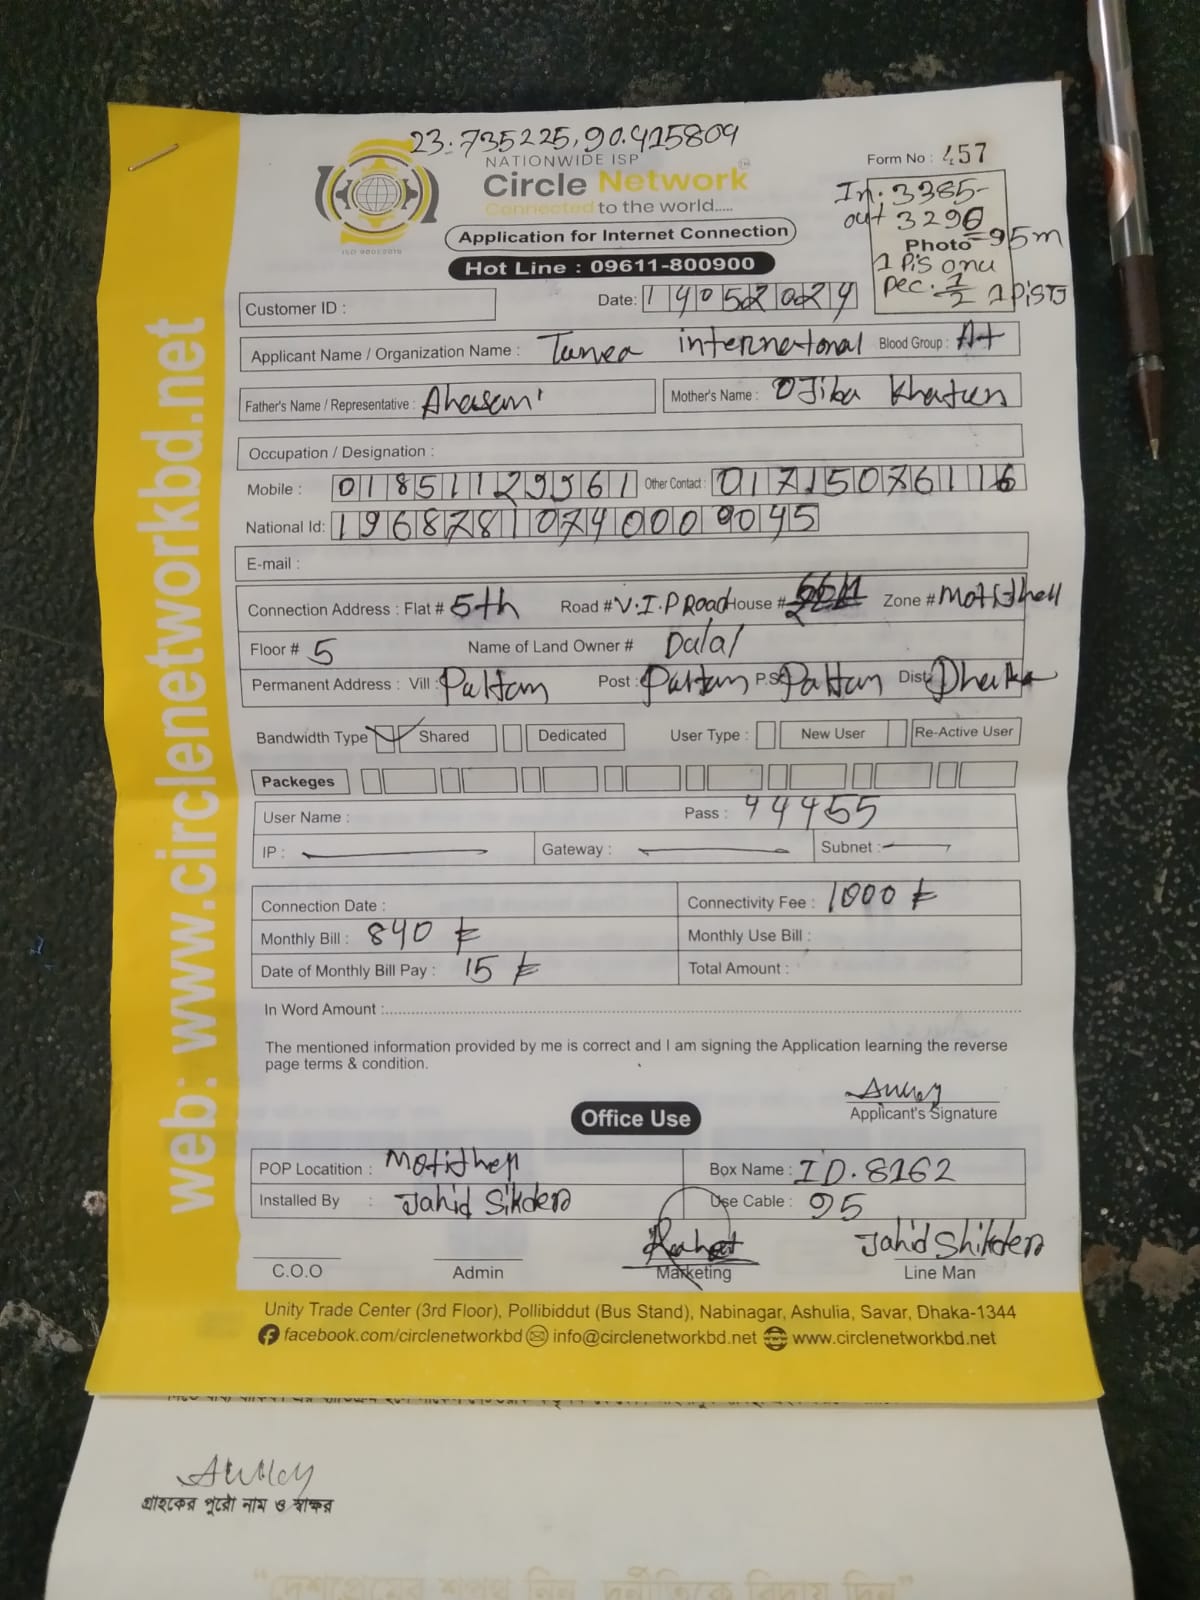 23.735225, 90.415809
NATIONWIDE ISP
Circle Network
Connected to the world.....
ISO 9001:2015
Application for Internet Connection
Hot Line : 09611-800900
Form No : 457
In: 3385-
out 3290
Photo =95m
1 Pis onu
Customer ID :
Date: 14052024
Applicant Name / Organization Name : Blood Group : A+
Father's Name / Representative : Ahasan Mother's Name : Khatun
Occupation / Designation :
Mobile : 01851129961 Other Contact : 01715076116
National Id: 196878110740009045
E-mail :
Connection Address : Flat # 5th Road # V.I.P Road House # Zone # Motijhell
Floor # 5 Name of Land Owner # Dalal
Permanent Address : Vill : Paltan Post : Paltan P.S: Paltan Dist: Dhaka
Bandwidth Type Shared Dedicated User Type : New User Re-Active User
Packeges
User Name : Pass : 44455
IP : Gateway : Subnet :
Connection Date : Connectivity Fee : 1000 ৳
Monthly Bill : 840 ৳ Monthly Use Bill :
Date of Monthly Bill Pay : 15 ৳ Total Amount :
In Word Amount :
The mentioned information provided by me is correct and I am signing the Application learning the reverse
page terms & condition.
Applicant's Signature
Office Use
POP Locatition : Motijhell Box Name : ID.8162
Installed By : Jahid Sikder Use Cable : 95
Rahat Jahid Shikder
C.O.O Admin Marketing Line Man
Unity Trade Center (3rd Floor), Pollibiddut (Bus Stand), Nabinagar, Ashulia, Savar, Dhaka-1344
facebook.com/circlenetworkbd info@circlenetworkbd.net www.circlenetworkbd.net
web: www.circlenetworkbd.net
গ্রাহকের পুরো নাম ও স্বাক্ষর
“দেশপ্রেমের শপথ নিন, দুর্নীতিকে বিদায় দিন”